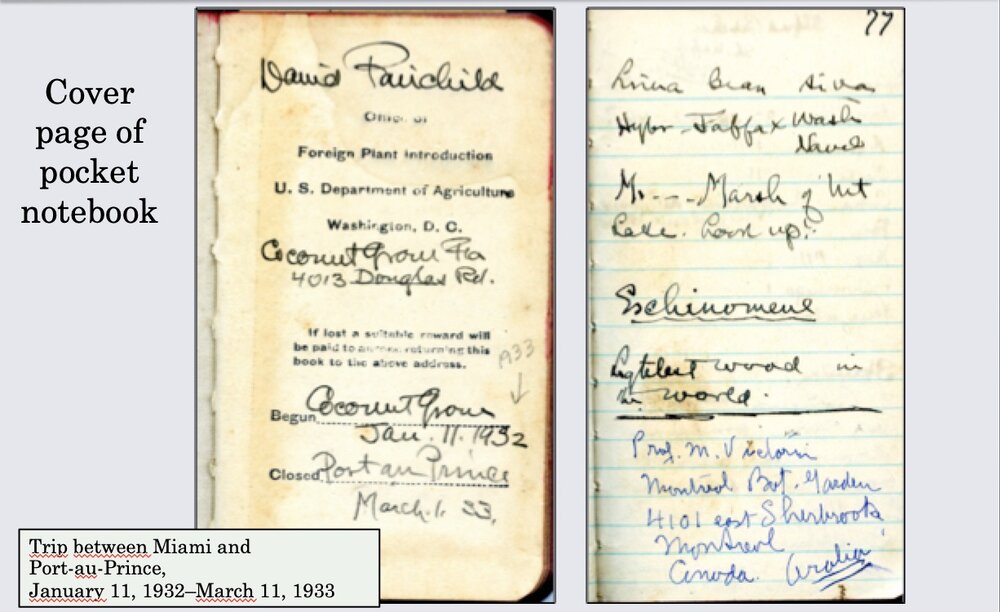 Cover
page of
pocket
notebook
David Fairchild
Office of
Foreign Plant Introduction
U. S. Department of Agriculture
Washington, D. C.
Coconut Grove Fla
4013 Douglas Rd.
If lost a suitable reward will
be paid to anyone returning this
book to the above address.
1933
Begun Coconut Grove
Jan. 11. 1932
Closed Port au Prince
March. 1. 33.
Trip between Miami and
Port-au-Prince,
January 11, 1932–March 11, 1933
77
Lima Bean
Wash
M. - - - Marsh of
Look up!
Eschinomene
Lightest wood in
world.
Prof. M. Victorin
Montreal Bot. Garden
4101 east Sherbrooke
Montreal
Canada. Aralia